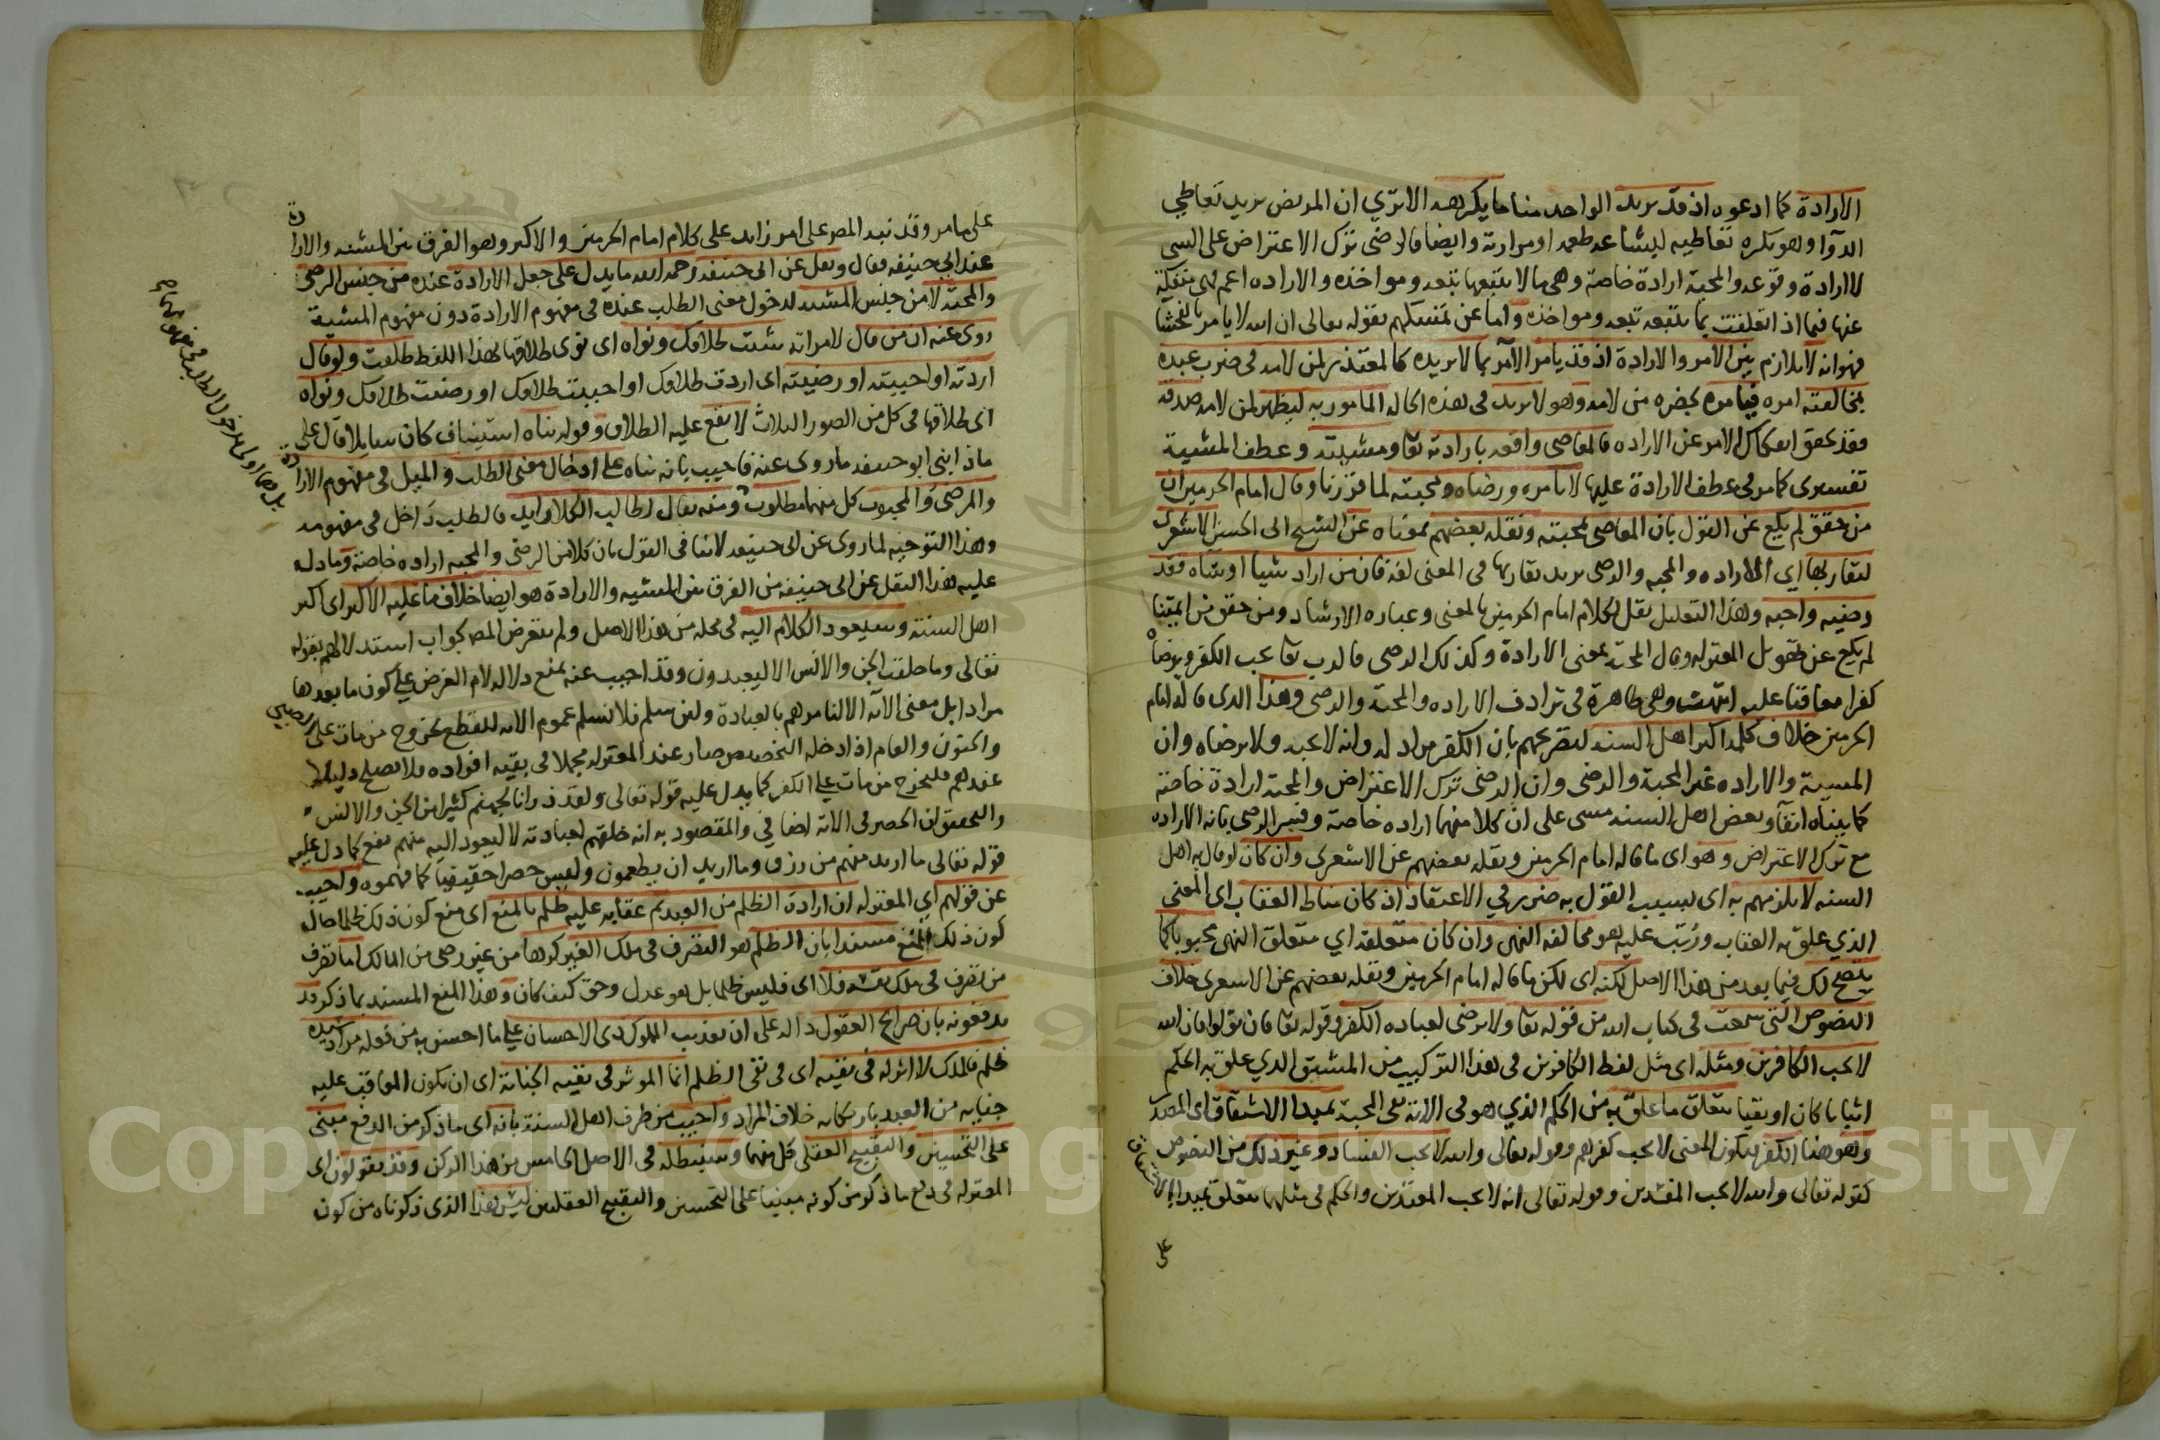 الارادة كما ادعوه اذ قد يريد الواحد منا ما يكرهه الا ترى ان المريض يريد تعاطي
الدوآ وهو يكره تعاطيه لبشاعة طعمه او مرارته وايضا فالرضى ترك الاعتراض على الشي
لا ارادة وقوعه والمحبة ارادة خاصة وهي ما لا يتبعها تبعه ومواخذه والاراده اعم فهي منفكة
عنها فيما اذا تعلقت بما يتبعه تبعه ومواخذه واما عن تمسكهم بقوله تعالى ان الله لا يامر بالفحشا
فهو انه لا تلازم بين الامر والارادة اذ قد يامر الآمر بما لا يريده كالمعتذر لمن لامه في ضرب عبده
بمخالفته امره فيامره بحضرة من لامه وهو لا يريد في هذه الحاله المامور به ليظهر لمن لامه صدقه
فقد تحقق انفكاك الامر عن الاراده فالمعاصي واقعه بارادته تعا ومشيئته وعطف المشية
تفسيرى كما مر في عطف الارادة عليها لا بامره ورضاه ومحبته لما قررنا وقال امام الحرمين ان
من حقق لم يكع عن القول بان المعاصي بمحبته ونقله بعضهم بمعناه عن الشيخ ابى الحسن الاشعرى
لتقاربها اي الاراده والمحبه والرضى يريد تقاربها في المعنى لغة فان من اراد شيا او شاه فقد
رضيه واحبه وهذا التعليل نقل لكلام امام الحرمين بالمعنى وعباره الارشاد ومن حقق من ايمتنا
لم يكع عن تهويل المعتزله وقال المحبة بمعنى الارادة وكذلك الرضى فالرب تعا يحب الكفر ويرضاه
كفرا معاقبا عليه انتهت وهي ظاهرة في ترادف الاراده والمحبة والرضى وهذا الذى قاله امام
الحرمين خلاف كلمة اكثر اهل السنة لتصريحهم بان الكفر مراد له وانه لا يحبه ولا يرضاه وان
المشية والاراده غير المحبة والرضى وان الرضى ترك الاعتراض والمحبة ارادة خاصة
كما بيناه آنفا وبعض اهل السنة مشى على ان كلا منهما اراده خاصة وفسر الرضى بانه الاراده
مع ترك الاعتراض وهو اى ما قاله امام الحرمين ونقله بعضهم عن الاشعرى وان كان لو قال به اهل
السنة لا يلزمهم به اى بسبب القول به ضرر في الاعتقاد اذ كان مناط العقاب اى المعنى
الذي علق به العقاب ورتب عليه هو مخالفة النهى وان كان متعلقه اي متعلق النهى محبوبا كما
يتضح لك فيما بعد من هذا الاصل لكنه اى لكن ما قاله امام الحرمين ونقله بعضهم عن الاشعرى خلاف
النصوص التي سمعت في كتاب الله من قوله تعا ولا يرضى لعباده الكفر وقوله تعا فان تولوا فان الله
لا يحب الكافرين ومثله اى مثل لفظ الكافرين في هذا التركيب من المشتق الذي علق به الحكم
اثباتا كان او نفيا يتعلق ما علق به من الحكم الذي هو في الاية نفى المحبة بمبدا الاشتقاق اى المصدر
وهو هنا الكفر فيكون المعنى لا يحب كفرهم وقوله تعالى والله لا يحب الفساد وغير ذلك من النصوص
كقوله تعالى والله لا يحب المفسدين وقوله تعالى انه لا يحب المعتدين والحكم في مثلها متعلق بمبدا الاشتقاق
على
على ما مر وقد نبه المص على امر زايد على كلام امام الحرمين والاكثر وهو الفرق بين المشية والارادة
عند ابي حنيفه فقال ونقل عن ابى حنيفه رحمه الله ما يدل على جعل الارادة عنده من جنس الرضى
والمحبة لا من جنس المشية لدخول معنى الطلب عنده في مفهوم الارادة دون مفهوم المشية
روى عنه ان من قال لامراته شئت طلاقك ونواه اى نوى طلاقها بهذا اللفظ طلقت ولو قال
اردته او احببته او رضيته اى اردت طلاقك او احببت طلاقك او رضيت طلاقك ونواه
اى طلاقها في كل من الصور الثلاث لا يقع عليه الطلاق وقوله بناه استيناف كان سايلا قال على
ماذا ابنى ابو حنيفه ما روى عنه فاجيب بانه بناه على ادخال معنى الطلب والميل في مفهوم الارادة
والمرضى والمحبوب كل منهما مطلوب ومنه يقال لطالب الكلا رايد فالطلب داخل في مفهومه
وهذا التوجيه لما روى عن ابى حنيفه لا ينافى القول بان كلا من الرضى والمحبه اراده خاصة وما دل
عليه هذا النقل عن ابى حنيفه من الفرق بين المشيه والارادة هو ايضا خلاف ما عليه الاكثر اى اكثر
اهل السنة وسيعود الكلام اليه في محله من هذا الاصل ولم يتعرض المص لجواب استدلالهم بقوله
تعالى وما خلقت الجن والانس الا ليعبدون وقد اجيب عنه بمنع دلالة لام الغرض على كون ما بعدها
مرادا بل معنى الآية الا لنامرهم بالعبادة ولئن سلم فلا نسلم عموم الاية للقطع بخروج من مات على الصبى
والجنون والعام اذا دخله التخصيص صار عند المعتزله مجملا في بقية افراده فلا يصلح دليلا
عندهم فليخرج من مات على الكفر كما يدل عليه قوله تعالى ولقد ذرانا لجهنم كثيرا من الجن والانس
والتحقيق ان الحصر في الاية اضافي والمقصود به انه خلقهم لعبادته لا ليعود اليه منهم نفع كما دل عليه
قوله تعالى ما اريد منهم من رزق وما اريد ان يطعمون وليس حصرا حقيقيا كما فهموه واجيب
عن قولهم اي المعتزله ان ارادة الظلم من العبد ثم عقابه عليه ظلم بالمنع اى منع كون ذلك ظلما حال
كون ذلك المنع مسندا بان الظلم هو التصرف في ملك الغير كرها من غير رضى من المالك اما تصرف
من تصرف في ملك نفسه فلا اى فليس ظلما بل هو عدل وحق كيف كان وهذا المنع المسند بما ذكر قد
يدفعونه بان صرايح العقول دالة على ان تعذيب المملوك ذى الاحسان على ما احسن به من فعله مراد سيده
ظلم فالملك لا اثر له في نفيه اى في نفى الظلم انما الموثر في نفيه الجناية اى ان يكون المعاقب عليه
جنايه من العبد بارتكابه خلاف المراد واجيب من طرف اهل السنة بانه اى ما ذكر من الدفع مبنى
على التحسين والتقبيح العقلى كل منهما وسنبطله في الاصل الخامس من هذا الركن وقد يقولون اى
المعتزله في دفع ما ذكر من كونه مبنيا على التحسين والتقبيح العقليين ليس هذا الذى ذكرناه من كون